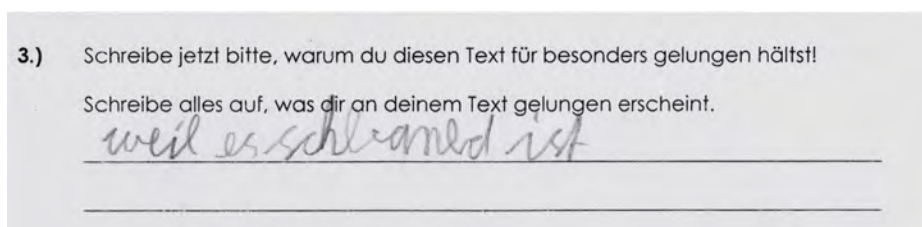 3.) Schreibe jetzt bitte, warum du diesen Text für besonders gelungen hältst!
Schreibe alles auf, was dir an deinem Text gelungen erscheint.
weil es ist